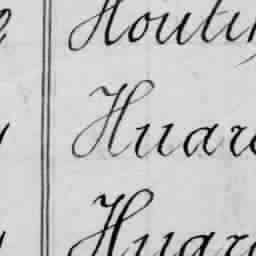 Houti
Huar
Huar